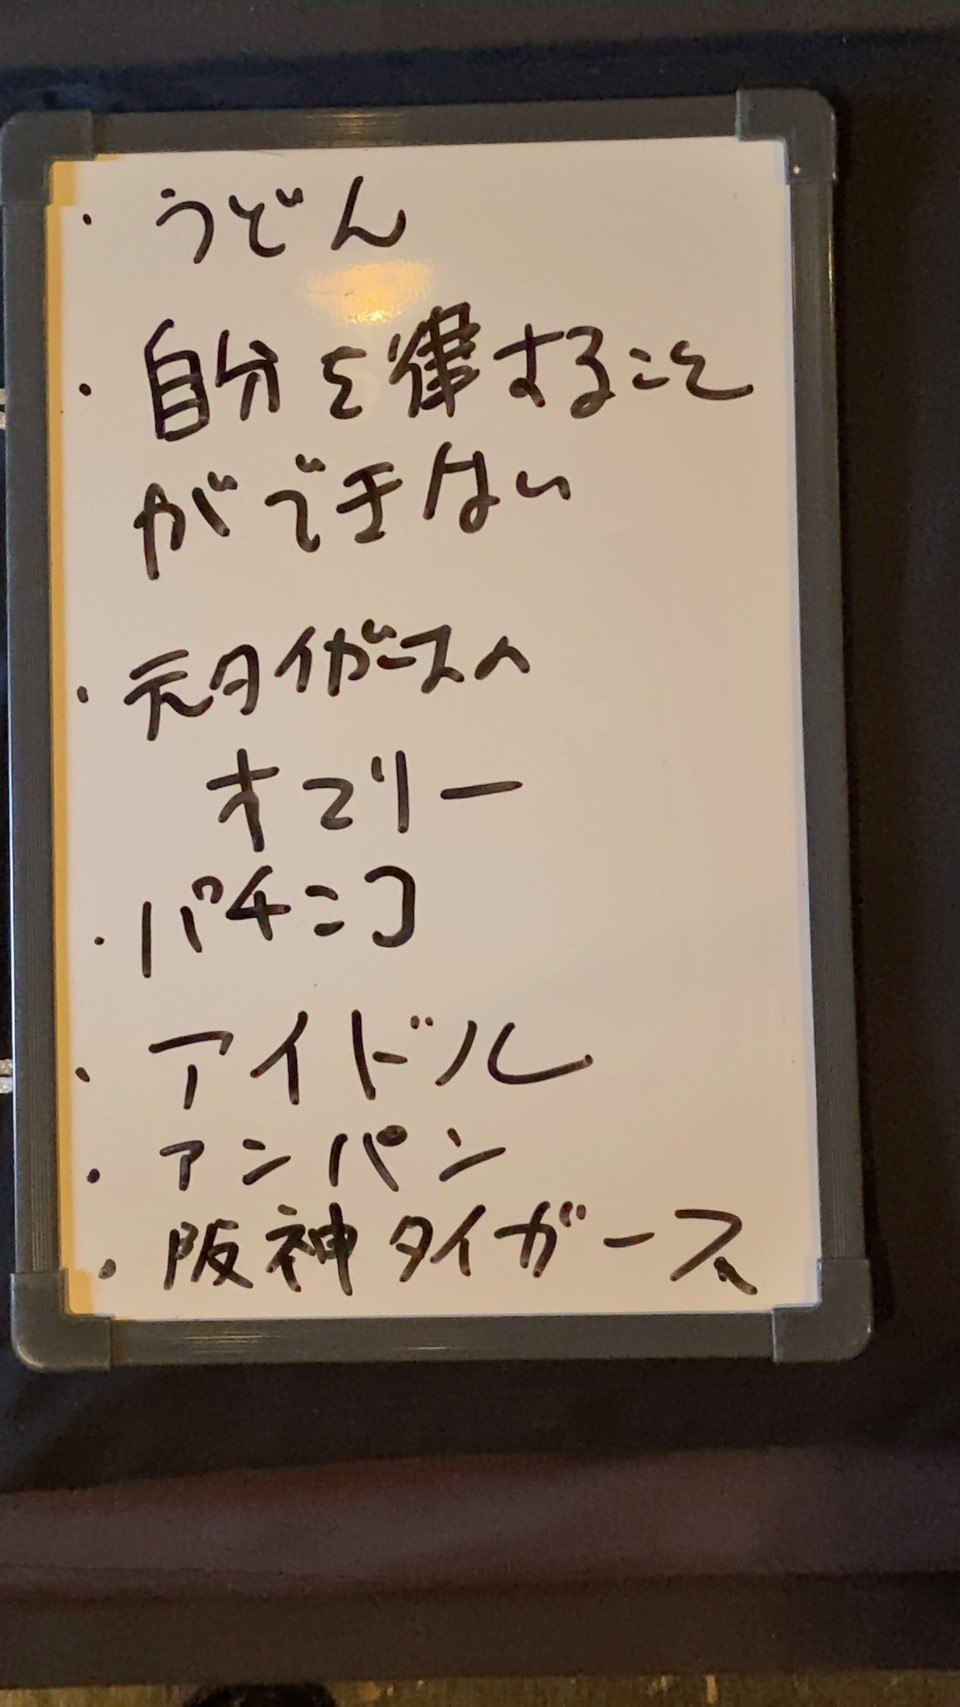 ・うどん
・自分を律すること
ができない
・元タイガースの
オマリー
・パチンコ
・アイドル
・アンパン
・阪神タイガース